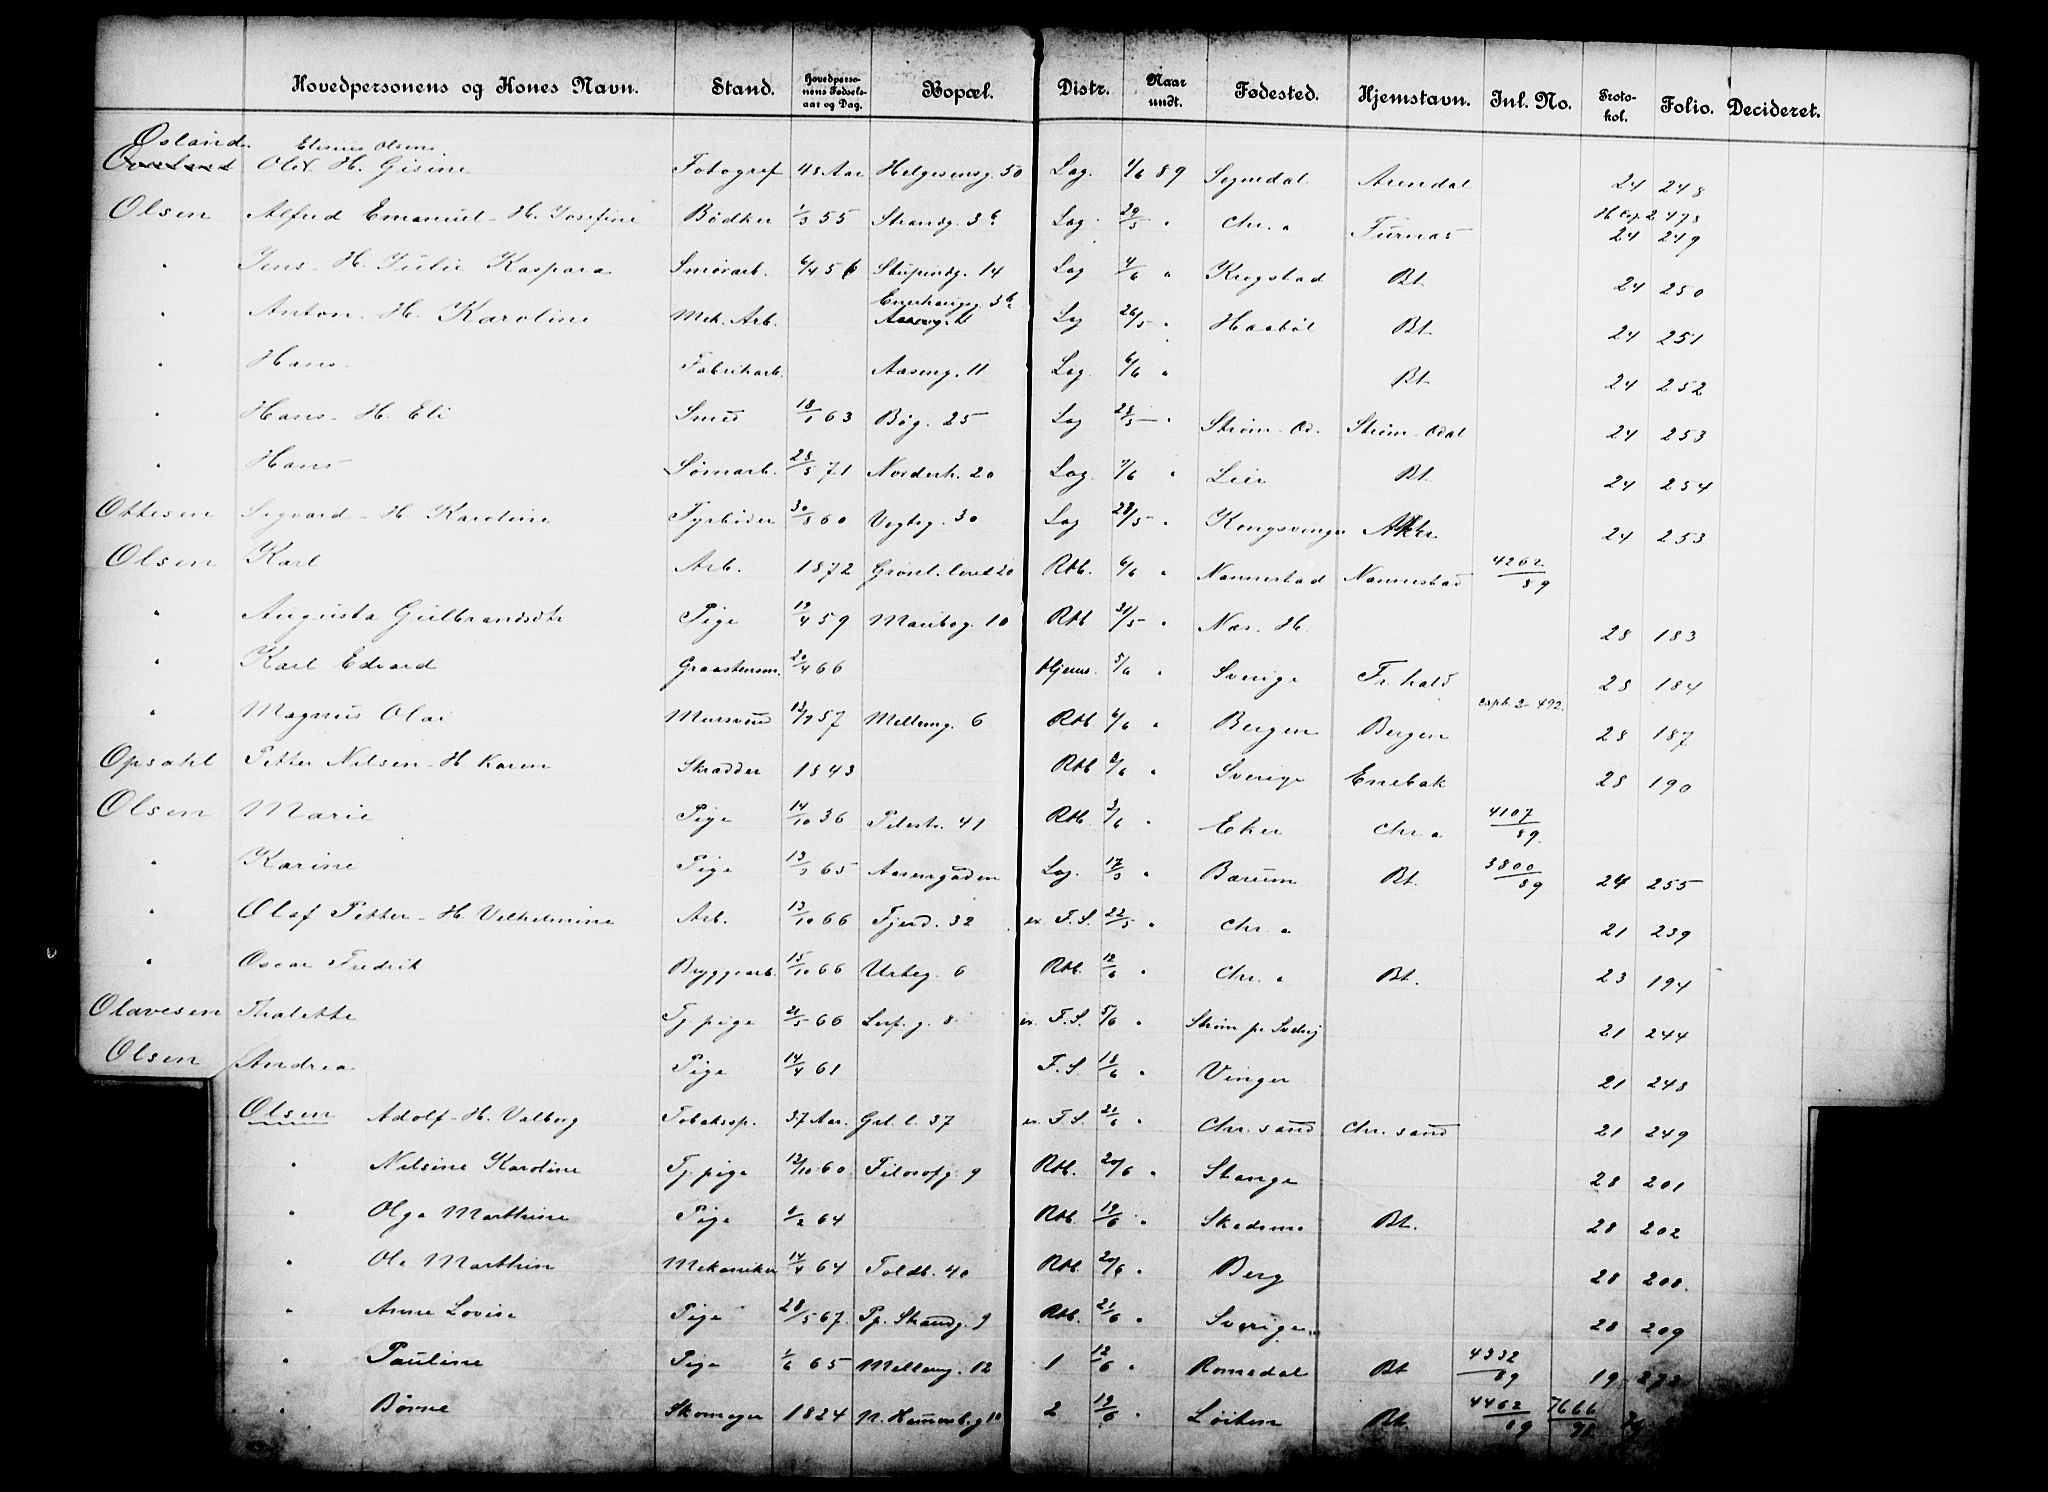 Hovedpersonens og Kones Navn. Stand. Hovedperso-nens Fødsels-aar og Dag. Bopæl. Distr. Naar undt. Fødested. Hjemstavn. Inl. No. Proto-kol. Folio. Decideret.
Osland Elenius Olsen
Olet H. Gisine Fotograf 48 Aar Helgesensg. 50 Lag. 4/6 89 Arendal 24 248
Olsen Alfred Emanuel - H. Josefine Bødker 1/3 55 Strandg. 3b Lag. 29/5 " Chr.a Furnæs H Cop. 2 478 24 249
" Jens - H. Julie Kaspara Smørarb. 6/4 56 Stupendg. 14 Lag 4/6 " Krogstad Bt. 24 250
" Anton - H. Karoline Mek. Arb. Enerhaugg. 3b Lag 26/5 " Haabøl Bt. 24 251
" Hans - Fabrikarb. Aaseng. 11 Lag. 6/6 " Bt. 24 252
" Hans - H. Eli Smed 18/1 63 Bøg. 25 Lag 28/5 " Strøm - Od. Strøm - Odal 24 253
" Hans Sømarb. 28/5 71 Norderh. 20 Lag. 7/6 " Lier Bt. 24 254
Ottesen Sigvard - H Karoline Fyrbøder 30/8 60 Vogtsg. 30 Lag 28/5 " Kongsvinger Aker 24 253
Olsen Karl Arb. 1872 Grønl. leret 20 Rtb. 6/6 " Nannestad Nannestad 4262/89
" Augusta Gulbrandsdtr Pige 19/4 59 Maribog. 10 Rtb 31/5 " Næs. H. 28 183
" Karl Edvard Graastensm. 20/4 66 Hjems. 5/6 " Sverige Fr. hald 28 184
" Magnus Olai Mursvend 13/7 57 Mellemg. 6 Rtb. 6/6 " Bergen Bergen Coptb. 2 - 492. 28 187
Opsahl Petter Nilsen - H. Karen Skrædder 1843 Rtb 8/6 " Sverige Enebak 28 190
Olsen Marie Pige 14/10 36 Pilestr. 41 Rtb. 3/6 " Eker Chr.a 4107/89.
" Karine Pige 13/3 65 Aasengaden Lag. 17/5 " Bærum Bt. 3800/89 24 255
" Olaf Petter - H. Vilhelmine Arb. 13/10 66 Fjerd. 32 ex F. S. 22/5 " Chr.a 21 239
" Oscar Fredrik Bryggearb. 15/10 66 Urteg. 6 Rtb. 12/6 " Chr.a Bt. 23 194
Olavesen Thalette Tj. pige 21/5 66 g. 8 ex. F. S. 5/6 " Strøm pr. Svelvig 21 244
Olsen Andrea Pige 14/4 61 F. S. 18/6 " Vinger 21 248
Olsen Adolf - H. Valborg Tobakssp. 37 Aar. Grl. l. 37 ex. F. S. 21/6 " Chr. sand Chr. sand 21 249
" Nilsine Karoline Tj. pige 12/10 60. Filosofg. 9 Rtb. 20/6 " Stange 28 201
" Olga Marthine Pige 1/2 64 Rtb. 19/6 " Skedsmo Bt. 28 202
" Ole Marthin Mekaniker 14/4 64 Toldb. 40 Rtb. 20/6 " Berg 28 208.
" Anne Lovise Pige 28/5 67. Pp. Strandg. 9 Rtb. 21/6 " Sverige. 28 209
" Pauline Pige 1/6 65 Mellemg. 12 1 12/6 " Romedal Bt 4332/89 19 272
" Børre Skomager 1824 N. Hammersb. g 10 2 19/6 " Løiten Bt. 4462/89 7666/91